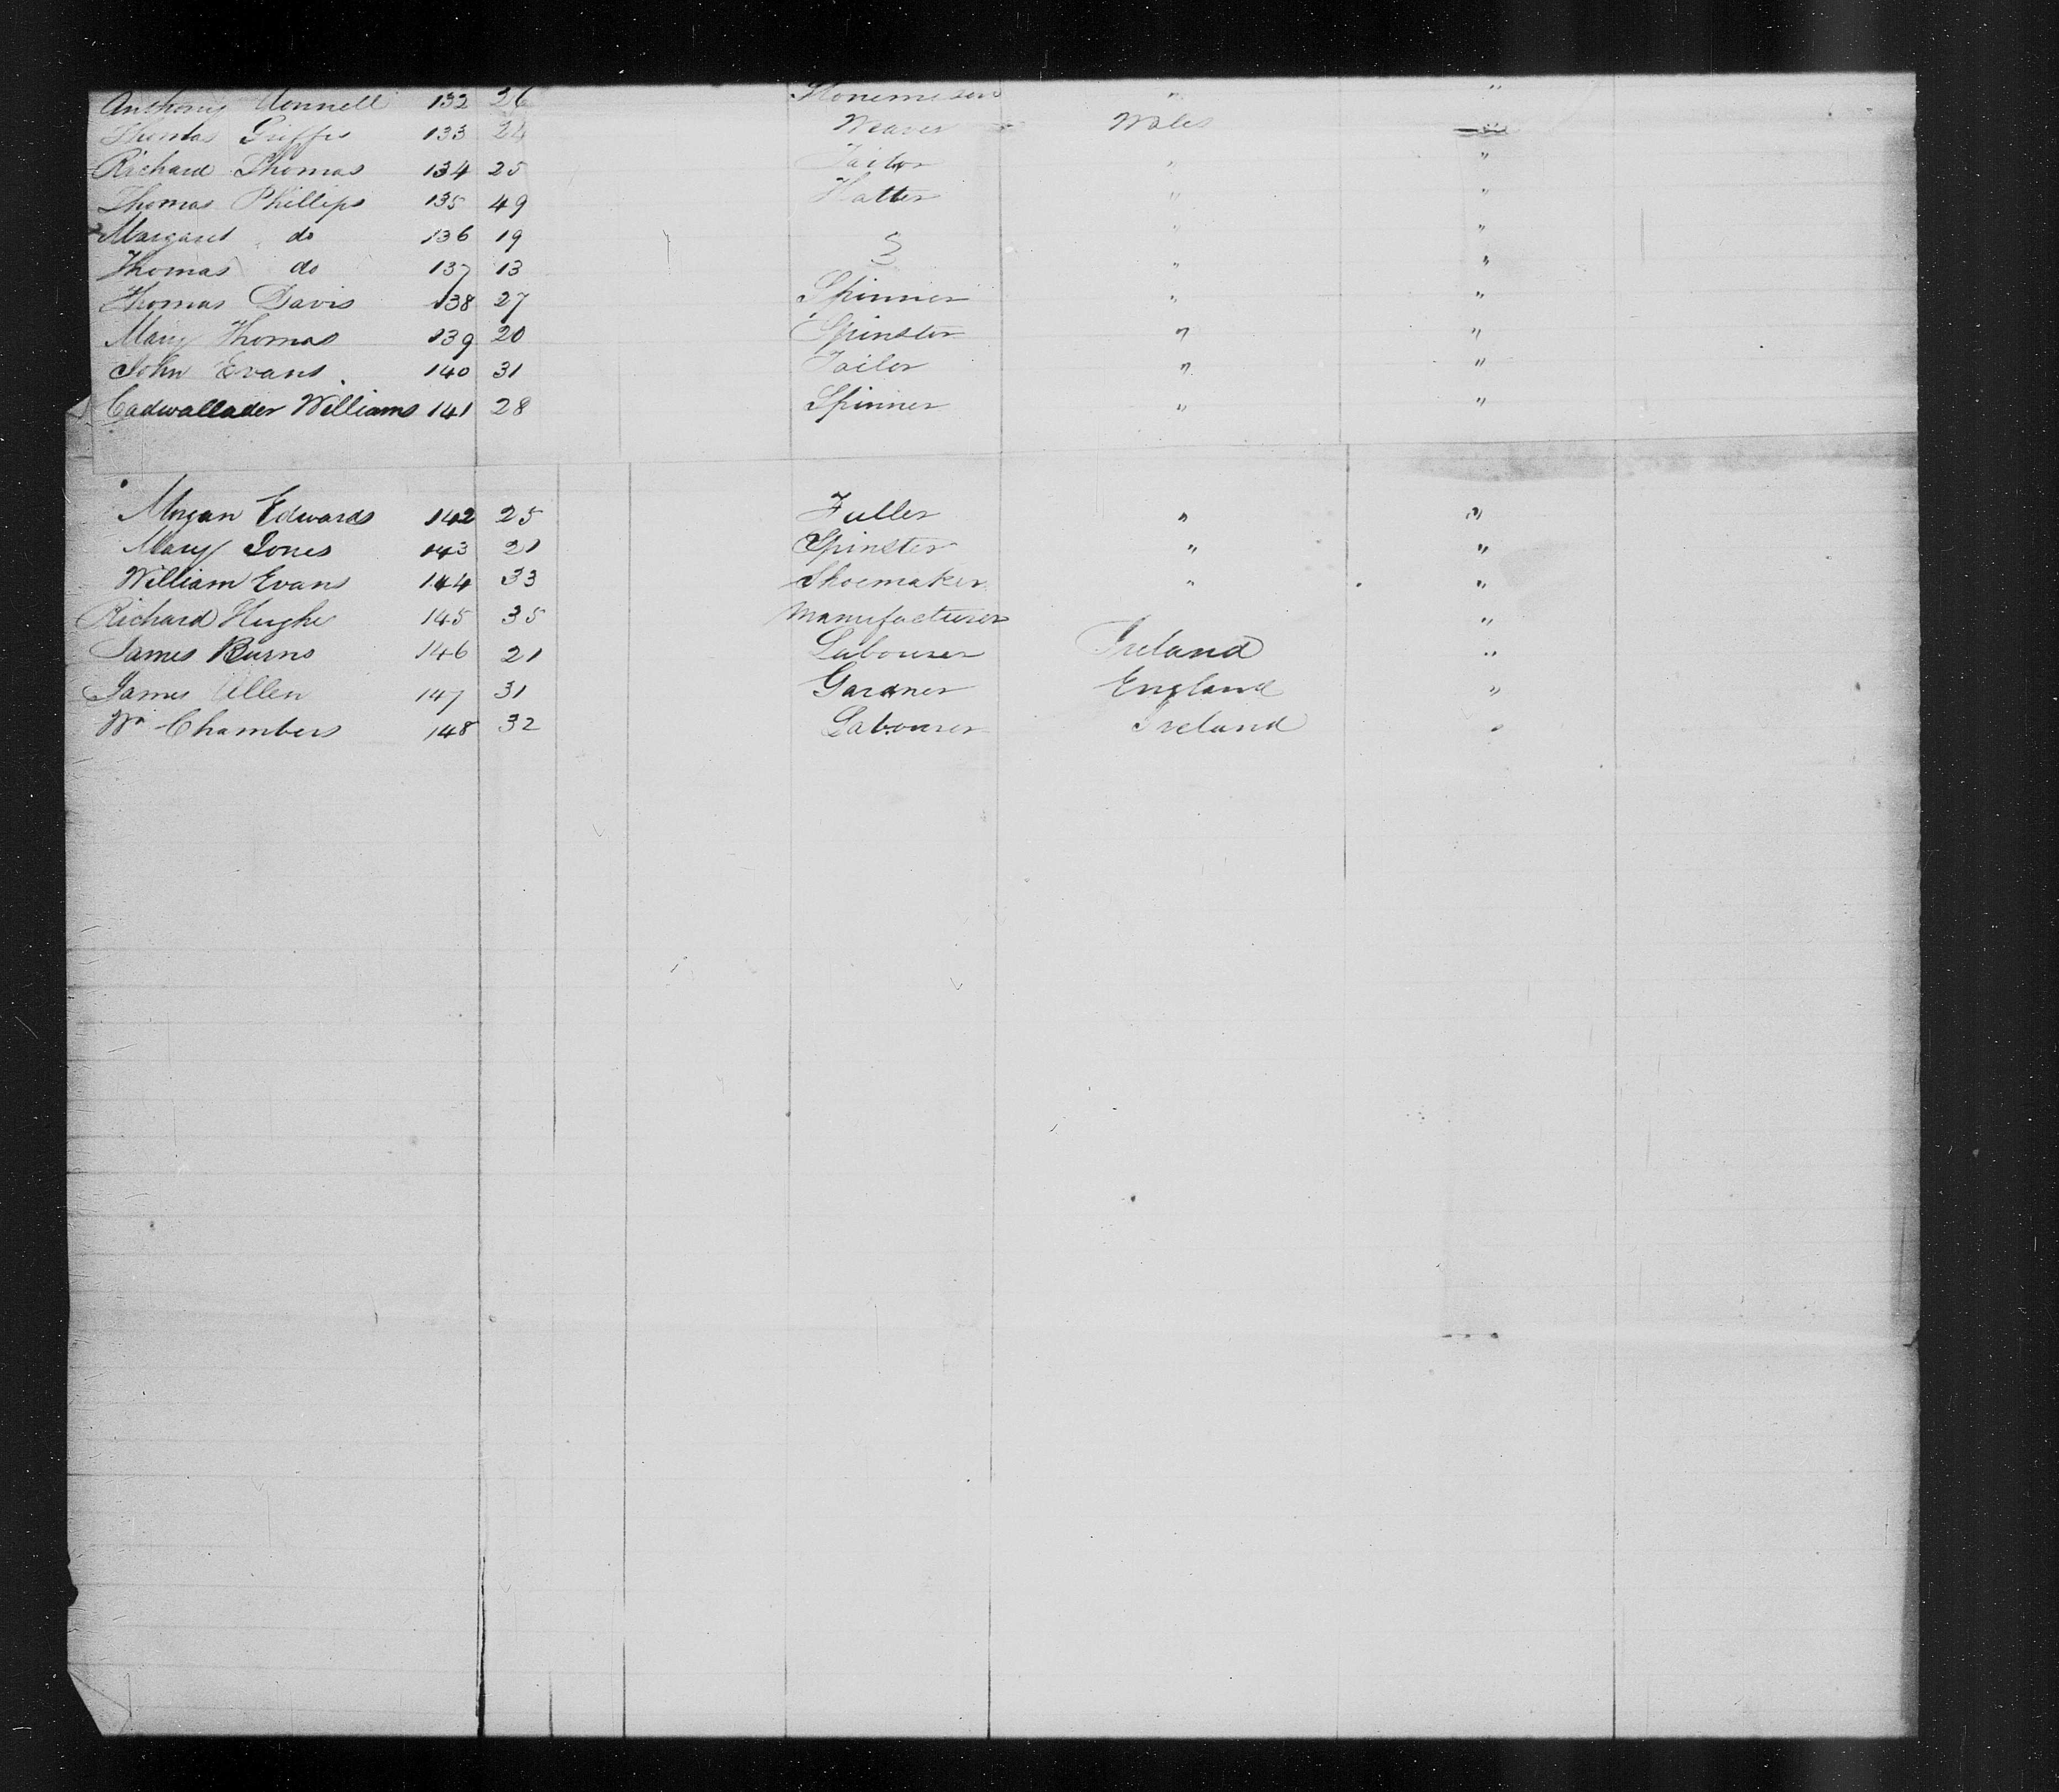 Anthony Connell 132 26 Stonemason " "
Thomas Griffis 133 24 Weaver Wales "
Richard Thomas 134 25 Tailor " "
Thomas Phillips 135 49 Hatter " "
Margaret do 136 19 " "
Thomas do 137 13 " "
Thomas Davis 138 27 Spinner " "
Mary Thomas 139 20 Spinster " "
John Evans 140 31 Tailor " "
Cadwallader Williams 141 28 Spinner " "
Morgan Edwards 142 25 Fuller " "
Mary Jones 143 21 Spinster " "
William Evans 144 33 Shoemaker " "
Richard Hughs 145 35 Manufacturer "
James Burns 146 21 Labourer Ireland "
James Allen 147 31 Gardner England "
Wm Chambers 148 32 Labourer Ireland "